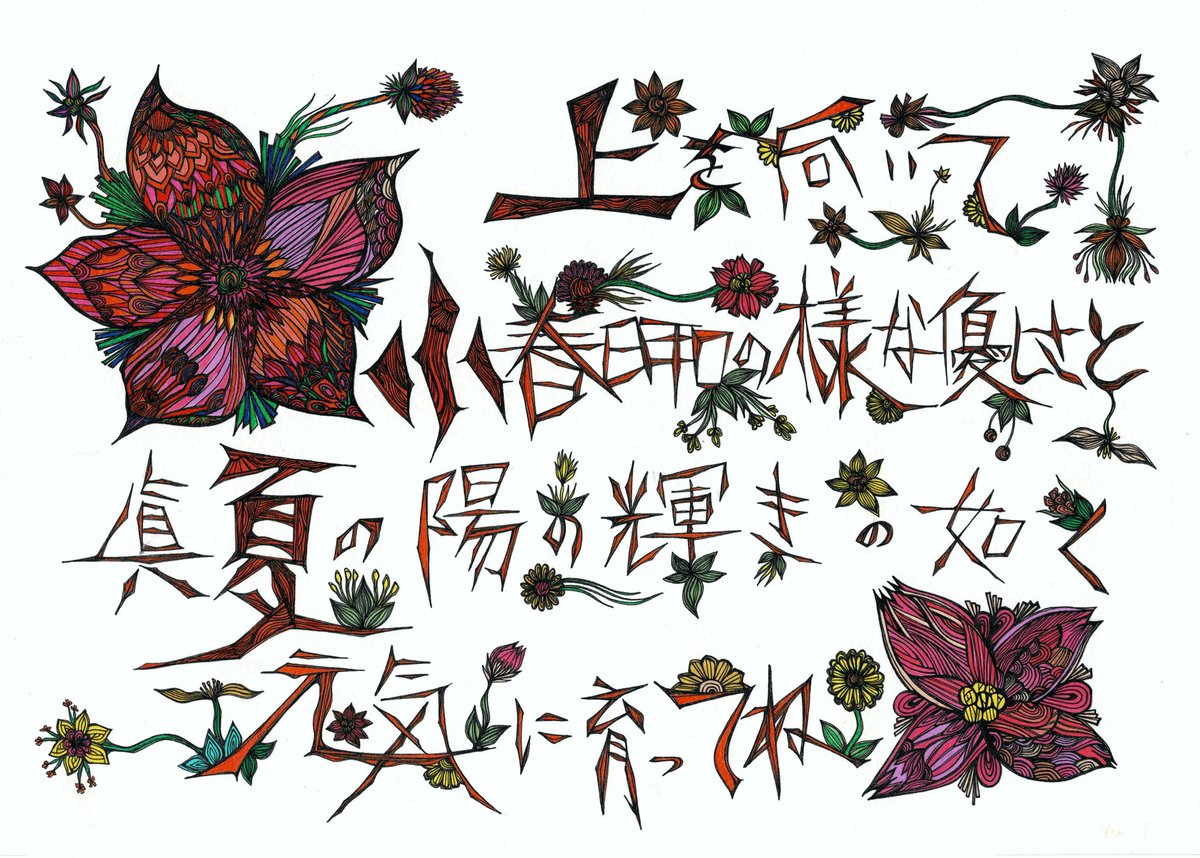 上を向いて
小春日和の様な優しさと
真夏の陽の輝きの如く
元気に育ってね